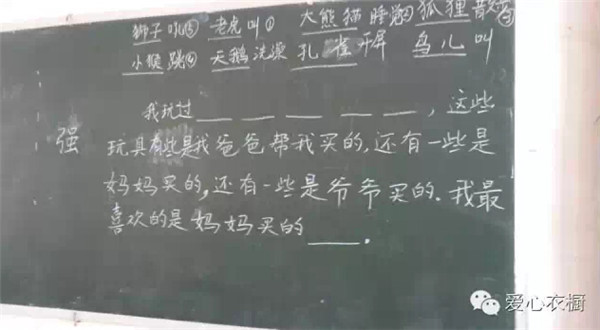 狮子吼⑤ 老虎叫① 大熊猫睡觉② 狐狸散步③
小猴跳④ 天鹅洗澡 孔雀开屏 鸟儿叫
我玩过＿＿ ＿＿ ＿＿ ＿＿ ＿＿，这些
强 玩具有些是我爸爸帮我买的，还有一些是
妈妈买的，还有一些是爷爷买的．我最
喜欢的是妈妈买的＿＿．
爱心衣橱